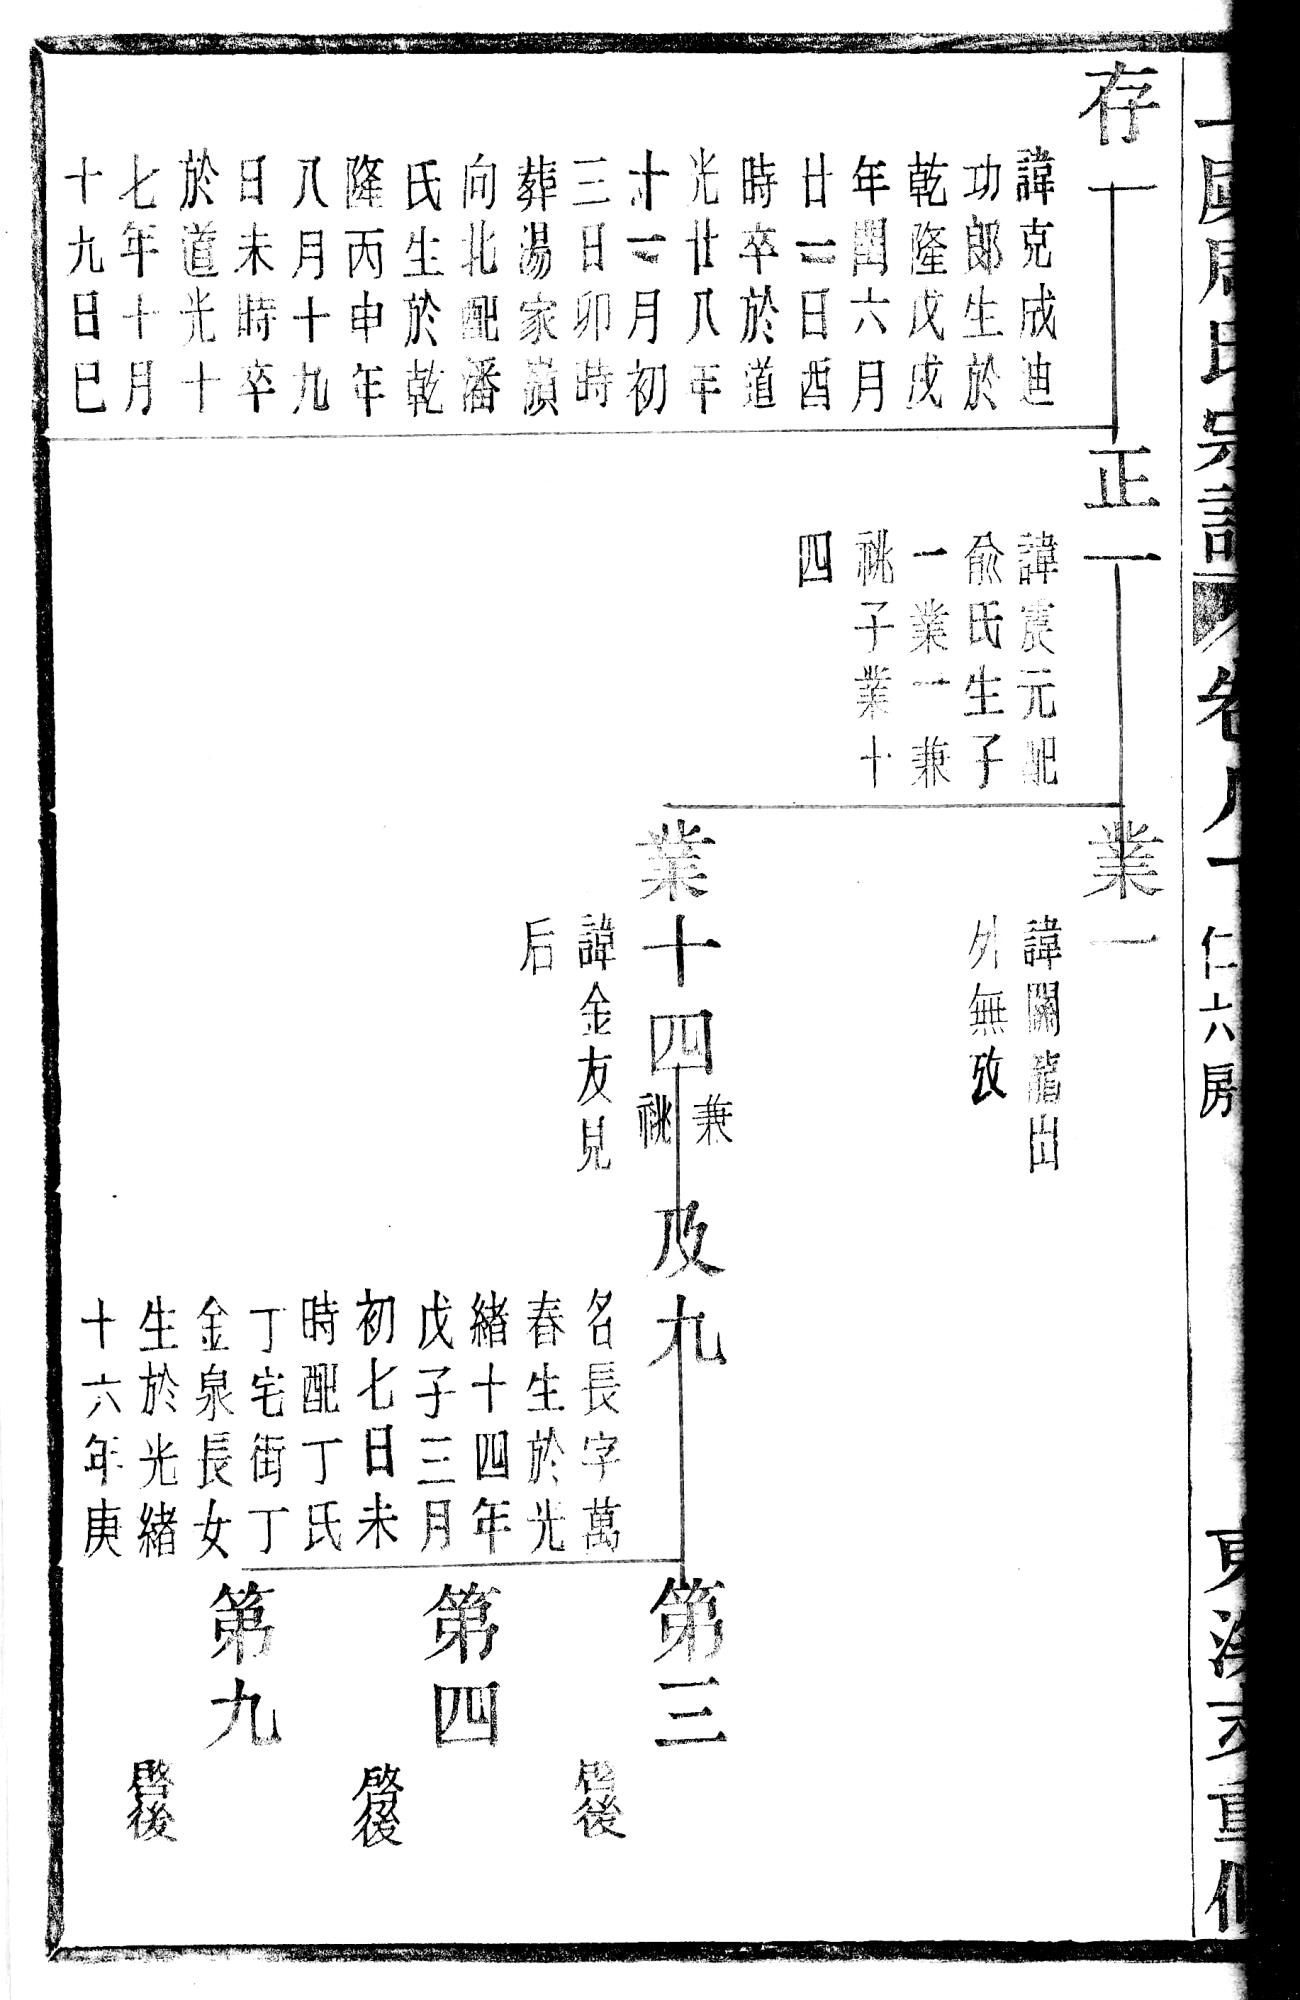 周氏宗譜
卷八
仁六房
重修
存一
諱克成迪
功郎生於
乾隆戊戌
年閏六月
廿一日酉
時卒於道
光廿八年
十一月初
三日卯時
葬湯家嶺
向北配潘
氏生於乾
隆丙申年
八月十九
日未時卒
於道光十
七年十月
十九日巳
正一
諱震元配
俞氏生子
一業一兼
祧子業十
四
業一
諱關龍出
外無攷
業十四
兼
祧
諱金友見
后
及九
名長字萬
春生於光
緒十四年
戊子三月
初七日未
時配丁氏
丁宅街丁
金泉長女
生於光緒
十六年庚
第三
啓後
第四
啓後
第九
啓後